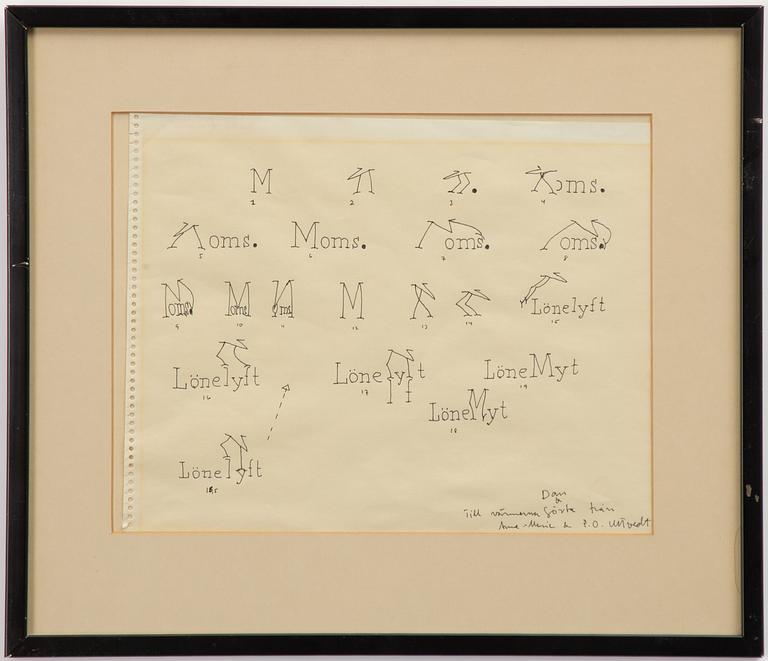 M
1 2 3 4
oms.
oms. Moms. oms. oms.
5 6 7 8
oms. Moms Moms M Lönelyft
9 10 11 12 13 14 15
Lönelyft Lönelyft LöneMyt
16 17 19
LöneMyt
18
Lönelyft
Dan
&
Till vännerna Gösta från
Anna-Maria & P.O. Ultvedt